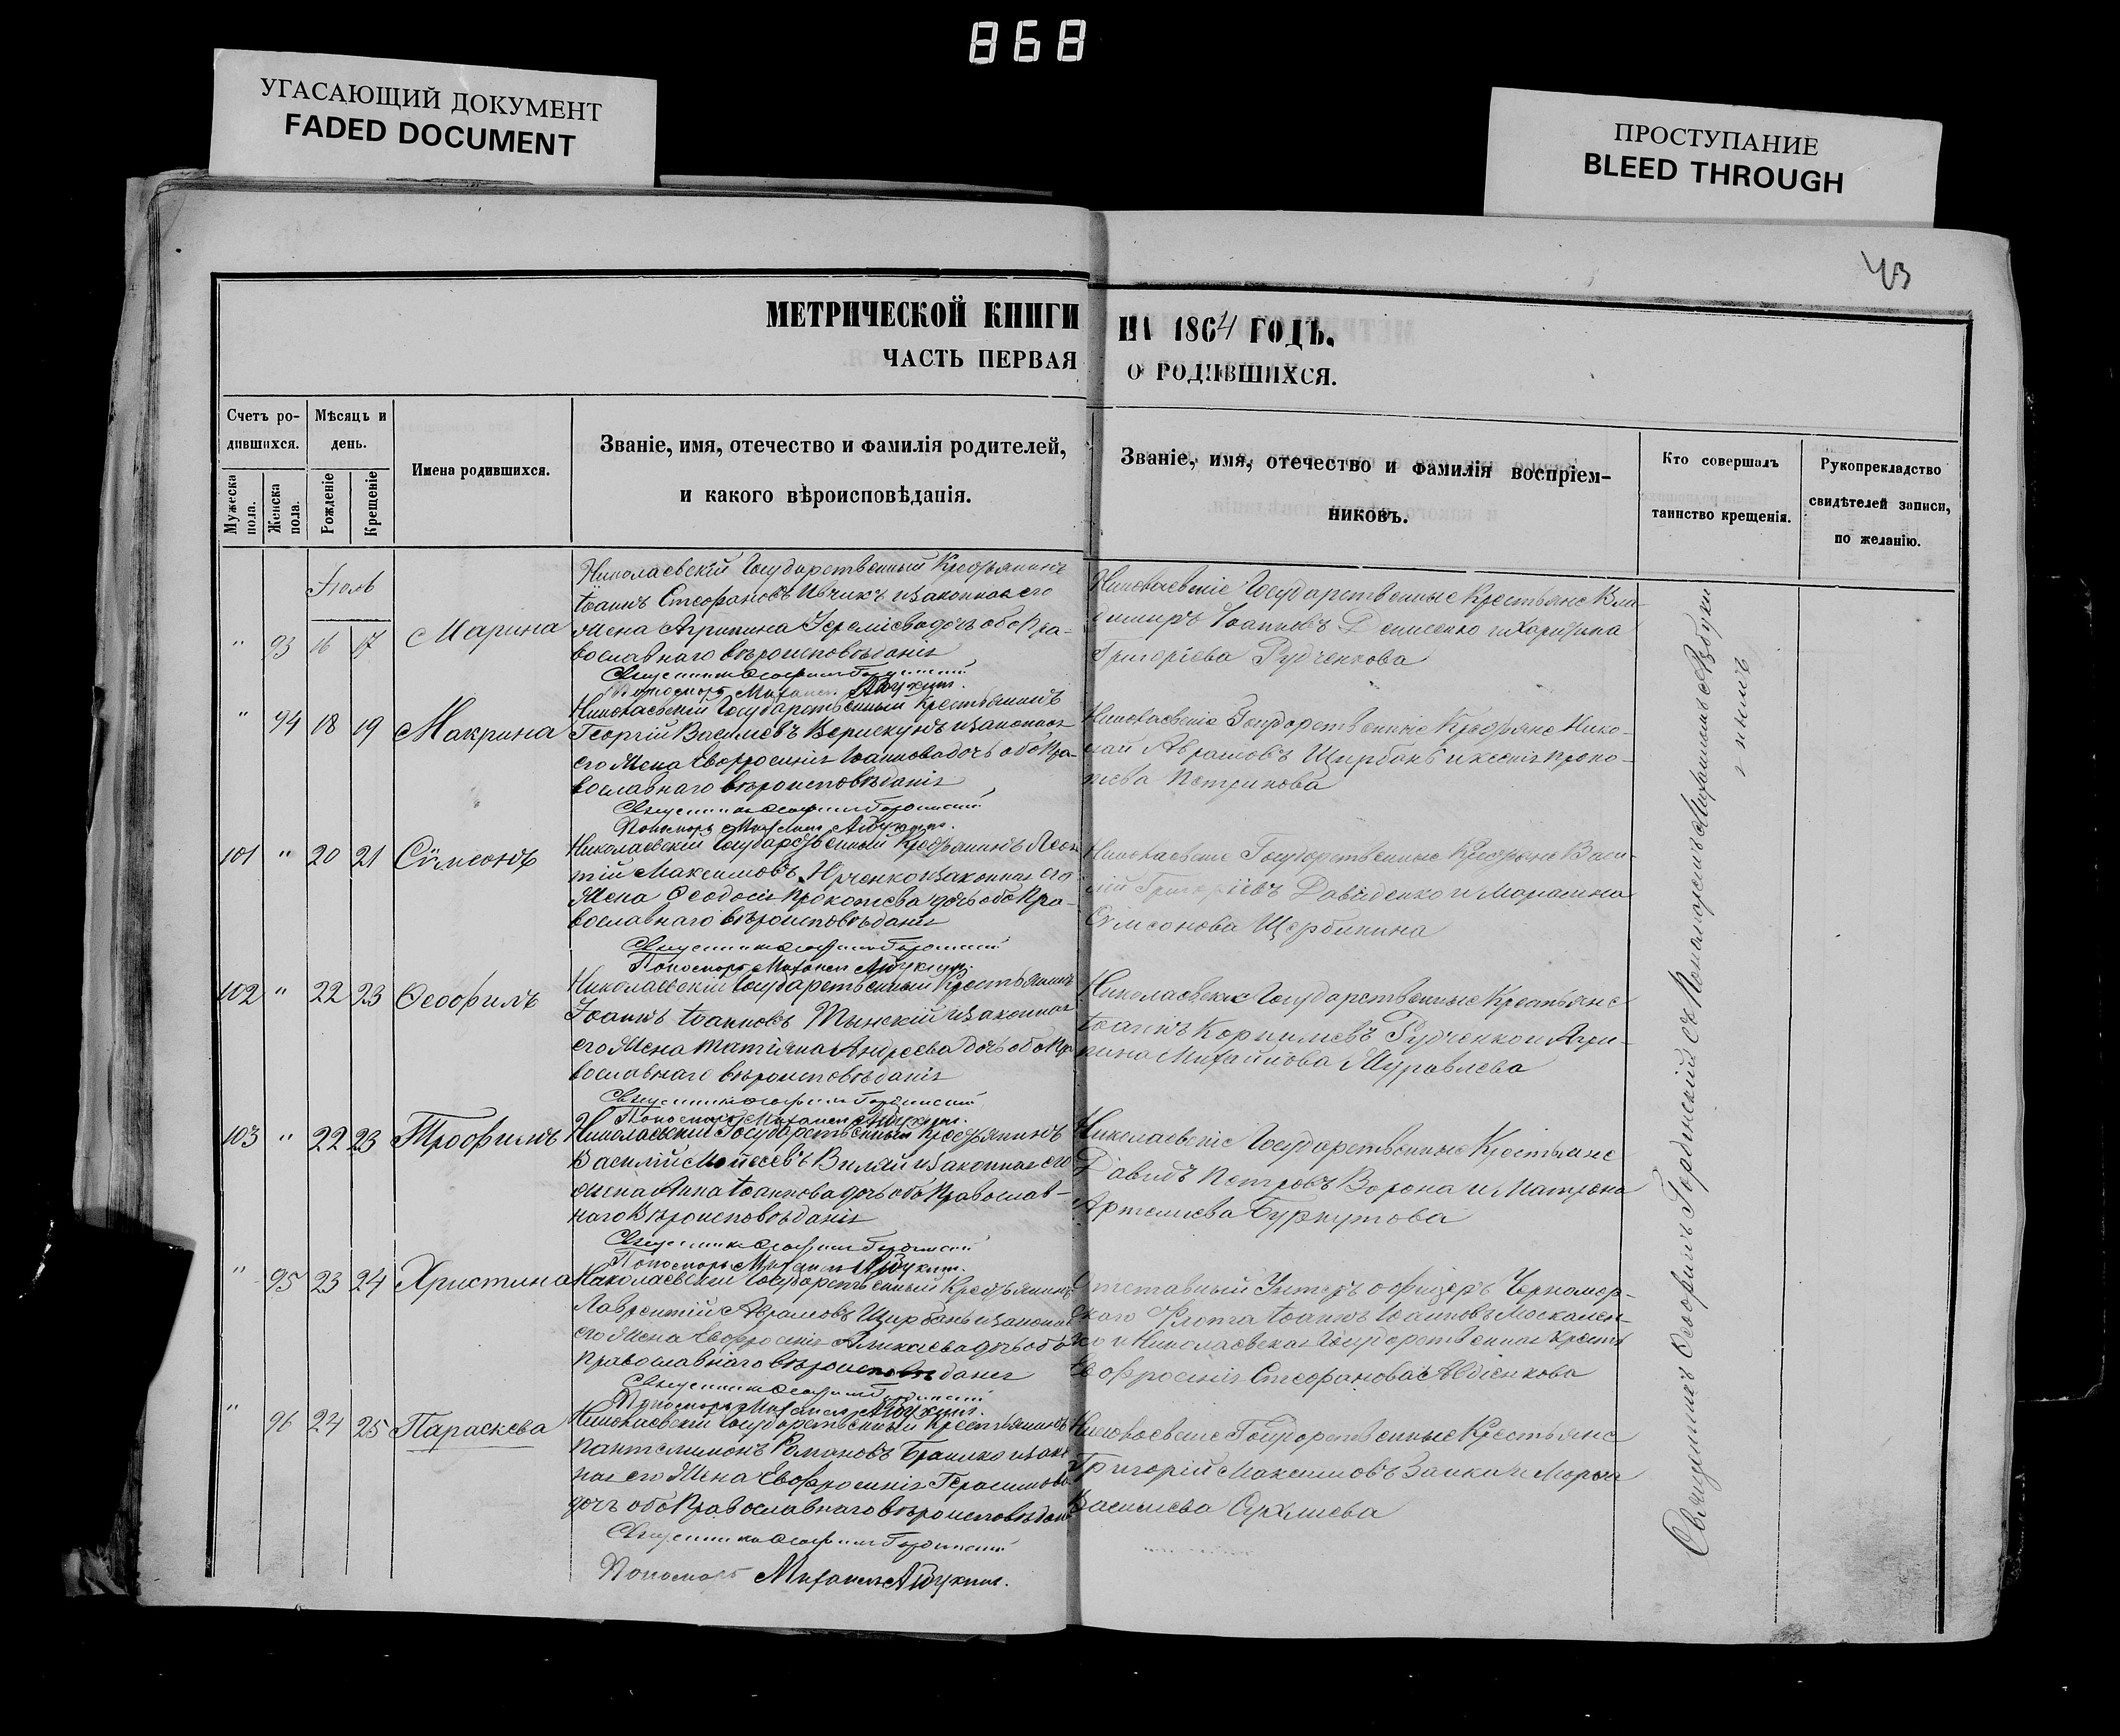 868
УГАСАЮЩИЙ ДОКУМЕНТ
FADED DOCUMENT
ПРОСТУПАНИЕ
BLEED THROUGH
43
МЕТРИЧЕСКОЙ КНИГИ
НА 1864 ГОДЪ.
ЧАСТЬ ПЕРВАЯ
О РОДИВШИХСЯ.
Счетъ ро-
дившихся.
Мужеска
пола.
Женска
пола.
Мѣсяцъ и
день.
Рожденіе
Крещеніе
Имена родившихся.
Званіе, имя, отечество и фамилія родителей,
и какого вѣроисповѣданія.
Званіе, имя, отечество и фамилія воспріем-
никовъ.
Кто совершалъ
таинство крещенія.
Рукоприкладство
свидѣтелей записи,
по желанію.
Іюль
" 93 16 17 Марина
Николаевскій Государственный Крестьянинъ
Іоаннъ Стефановъ Ивчикъ и законная его
жена Агрипина Іереміева дочь оба Пра-
вославнаго вѣроисповѣданія
Священникъ Ѳеофилъ Гординскій
Пономарь Михаилъ Азбукинъ.
Николаевскіе Государственные Крестьяне Вла-
димиръ Іоанновъ Денисенко и Харитина
Григоріева Рудченкова
" 94 18 19 Макрина
Николаевскій Государственный Крестьянинъ
Георгій Васильевъ и законная
его жена Евфросинія Іоаннова дочь оба Пра-
вославнаго вѣроисповѣданія
Священникъ Ѳеофилъ Гординскій
Пономарь Михаилъ Азбукинъ.
Николаевскіе Государственные Крестьяне Нико-
лай Аврамовъ Щирбань и Ксенія Проко-
піева Петрикова
101 " 20 21 Сімеонъ
Николаевскій Государственный Крестьянинъ Леон
тій Максимовъ Юрченко и законная его
жена Ѳеодосія Прокопіева дочь оба Пра-
вославнаго вѣроисповѣданія
Священникъ Ѳеофилъ Гординскій
Пономарь Михаилъ Азбукинъ.
Николаевскіе Государственные Крестьяне Васи-
лій Григоріевъ Давиденко и
Сімеонова Щербинина
102 " 22 23 Ѳеофилъ
Николаевскій Государственный Крестьянинъ
Іоаннъ Іоанновъ Тынскій и законная
его жена Татіяна Андреева дочь оба Пра
вославнаго вѣроисповѣданія
Священникъ Ѳеофилъ Гординскій
Пономарь Михаилъ Азбукинъ.
Николаевскіе Государственные Крестьяне
Іоаннъ Корнилиевъ Рудченко и Агри-
пина Михайлова Журавлева
103 " 22 23 Трофилъ
Николаевскій Государственный Крестьянинъ
Василій Мойсеевъ Виляй и законная его
жена Анна Іоаннова дочь оба Православ-
наго Вѣроисповѣданія
Священникъ Ѳеофилъ Гординскій
Пономарь Михаилъ Азбукинъ.
Николаевскіе Государственные Крестьяне
Давидъ Петровъ Ворона и Матрона
Артемиева Буркутова
" 95 23 24 Христина
Николаевскій Государственный Крестьянинъ
Лаврентій Аврамовъ Щирбань и законная
его жена Евфросинія дочь оба
Православнаго вѣроисповѣданія
Священникъ Ѳеофилъ Гординскій
Пономарь Михаилъ Азбукинъ.
Отставный Унтеръ офицеръ Черномор-
скаго Флота Іоаннъ Іоанновъ Москален-
ко и Николаевская Государственная Крест
Евфросинія Стефанова Авдіенкова
" 96 24 25 Параскева
Николаевскій Государственный Крестьянинъ
Пантелимонъ Романовъ и зако
ная его жена Евфросинія Герасимова
дочь оба Православнаго вѣроисповѣдан
Священникъ Ѳеофилъ Гординскій
Пономарь Михаилъ Азбукинъ.
Николаевскіе Государственные Крестьяне
Григорій Максимовъ Заика и Марѳа
Василиева
Священникъ Ѳеофилъ Гординскій съ Пономаремъ Михаиломъ Азбуки
нымъ